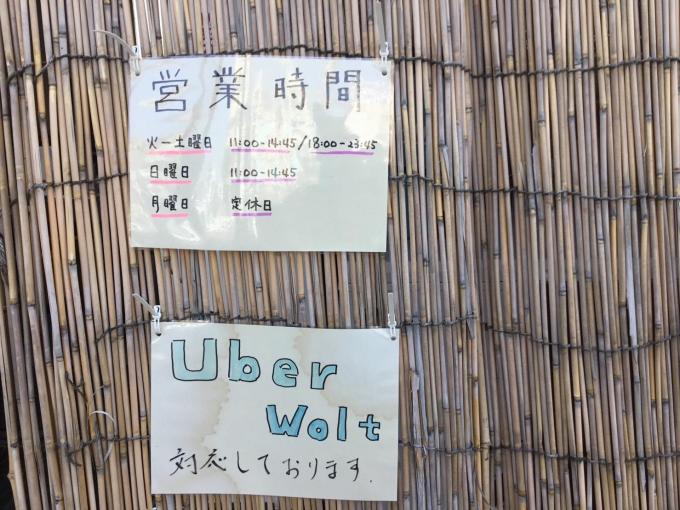 営業時間
火ー土曜日 11:00-14:45/18:00-23:45
日曜日 11:00-14:45
月曜日 定休日
Uber
Wolt
対応しております.